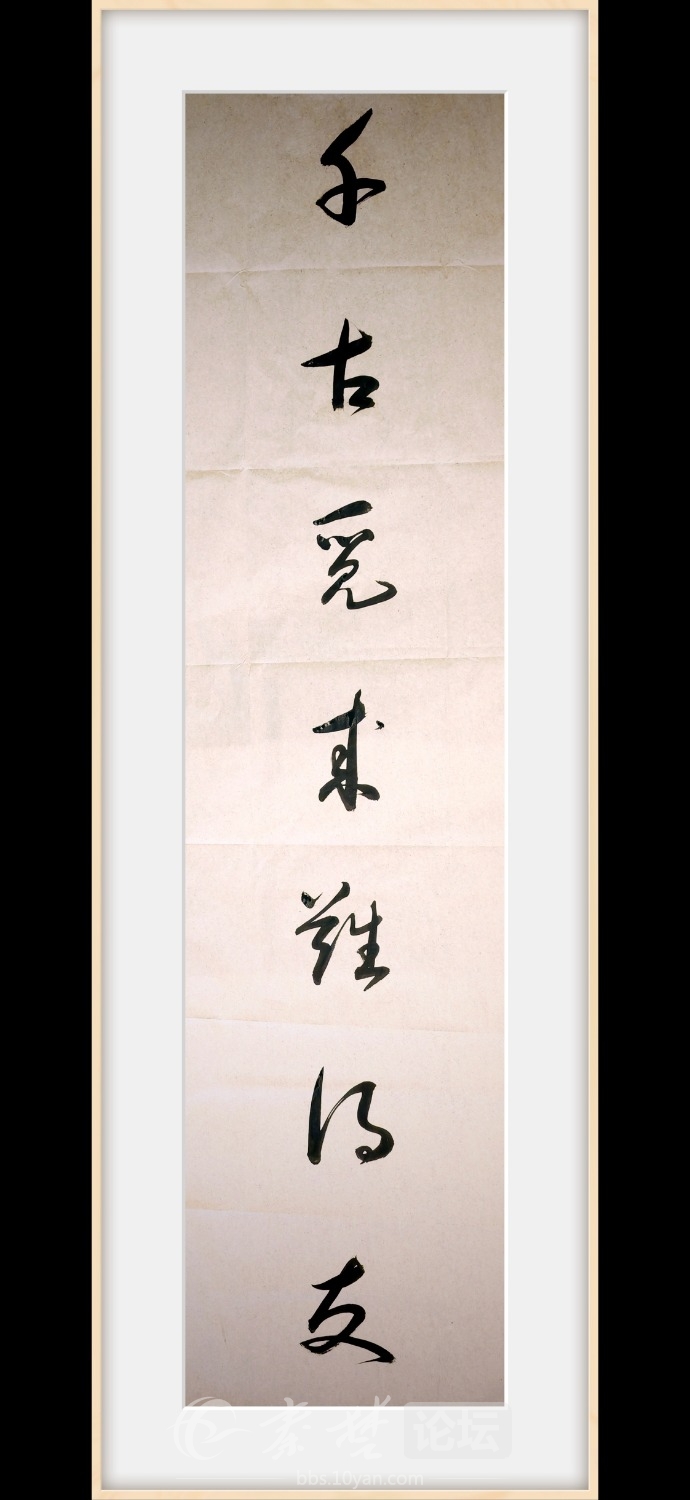 千古觅求难得友
秦楚论坛
bbs.10yan.com